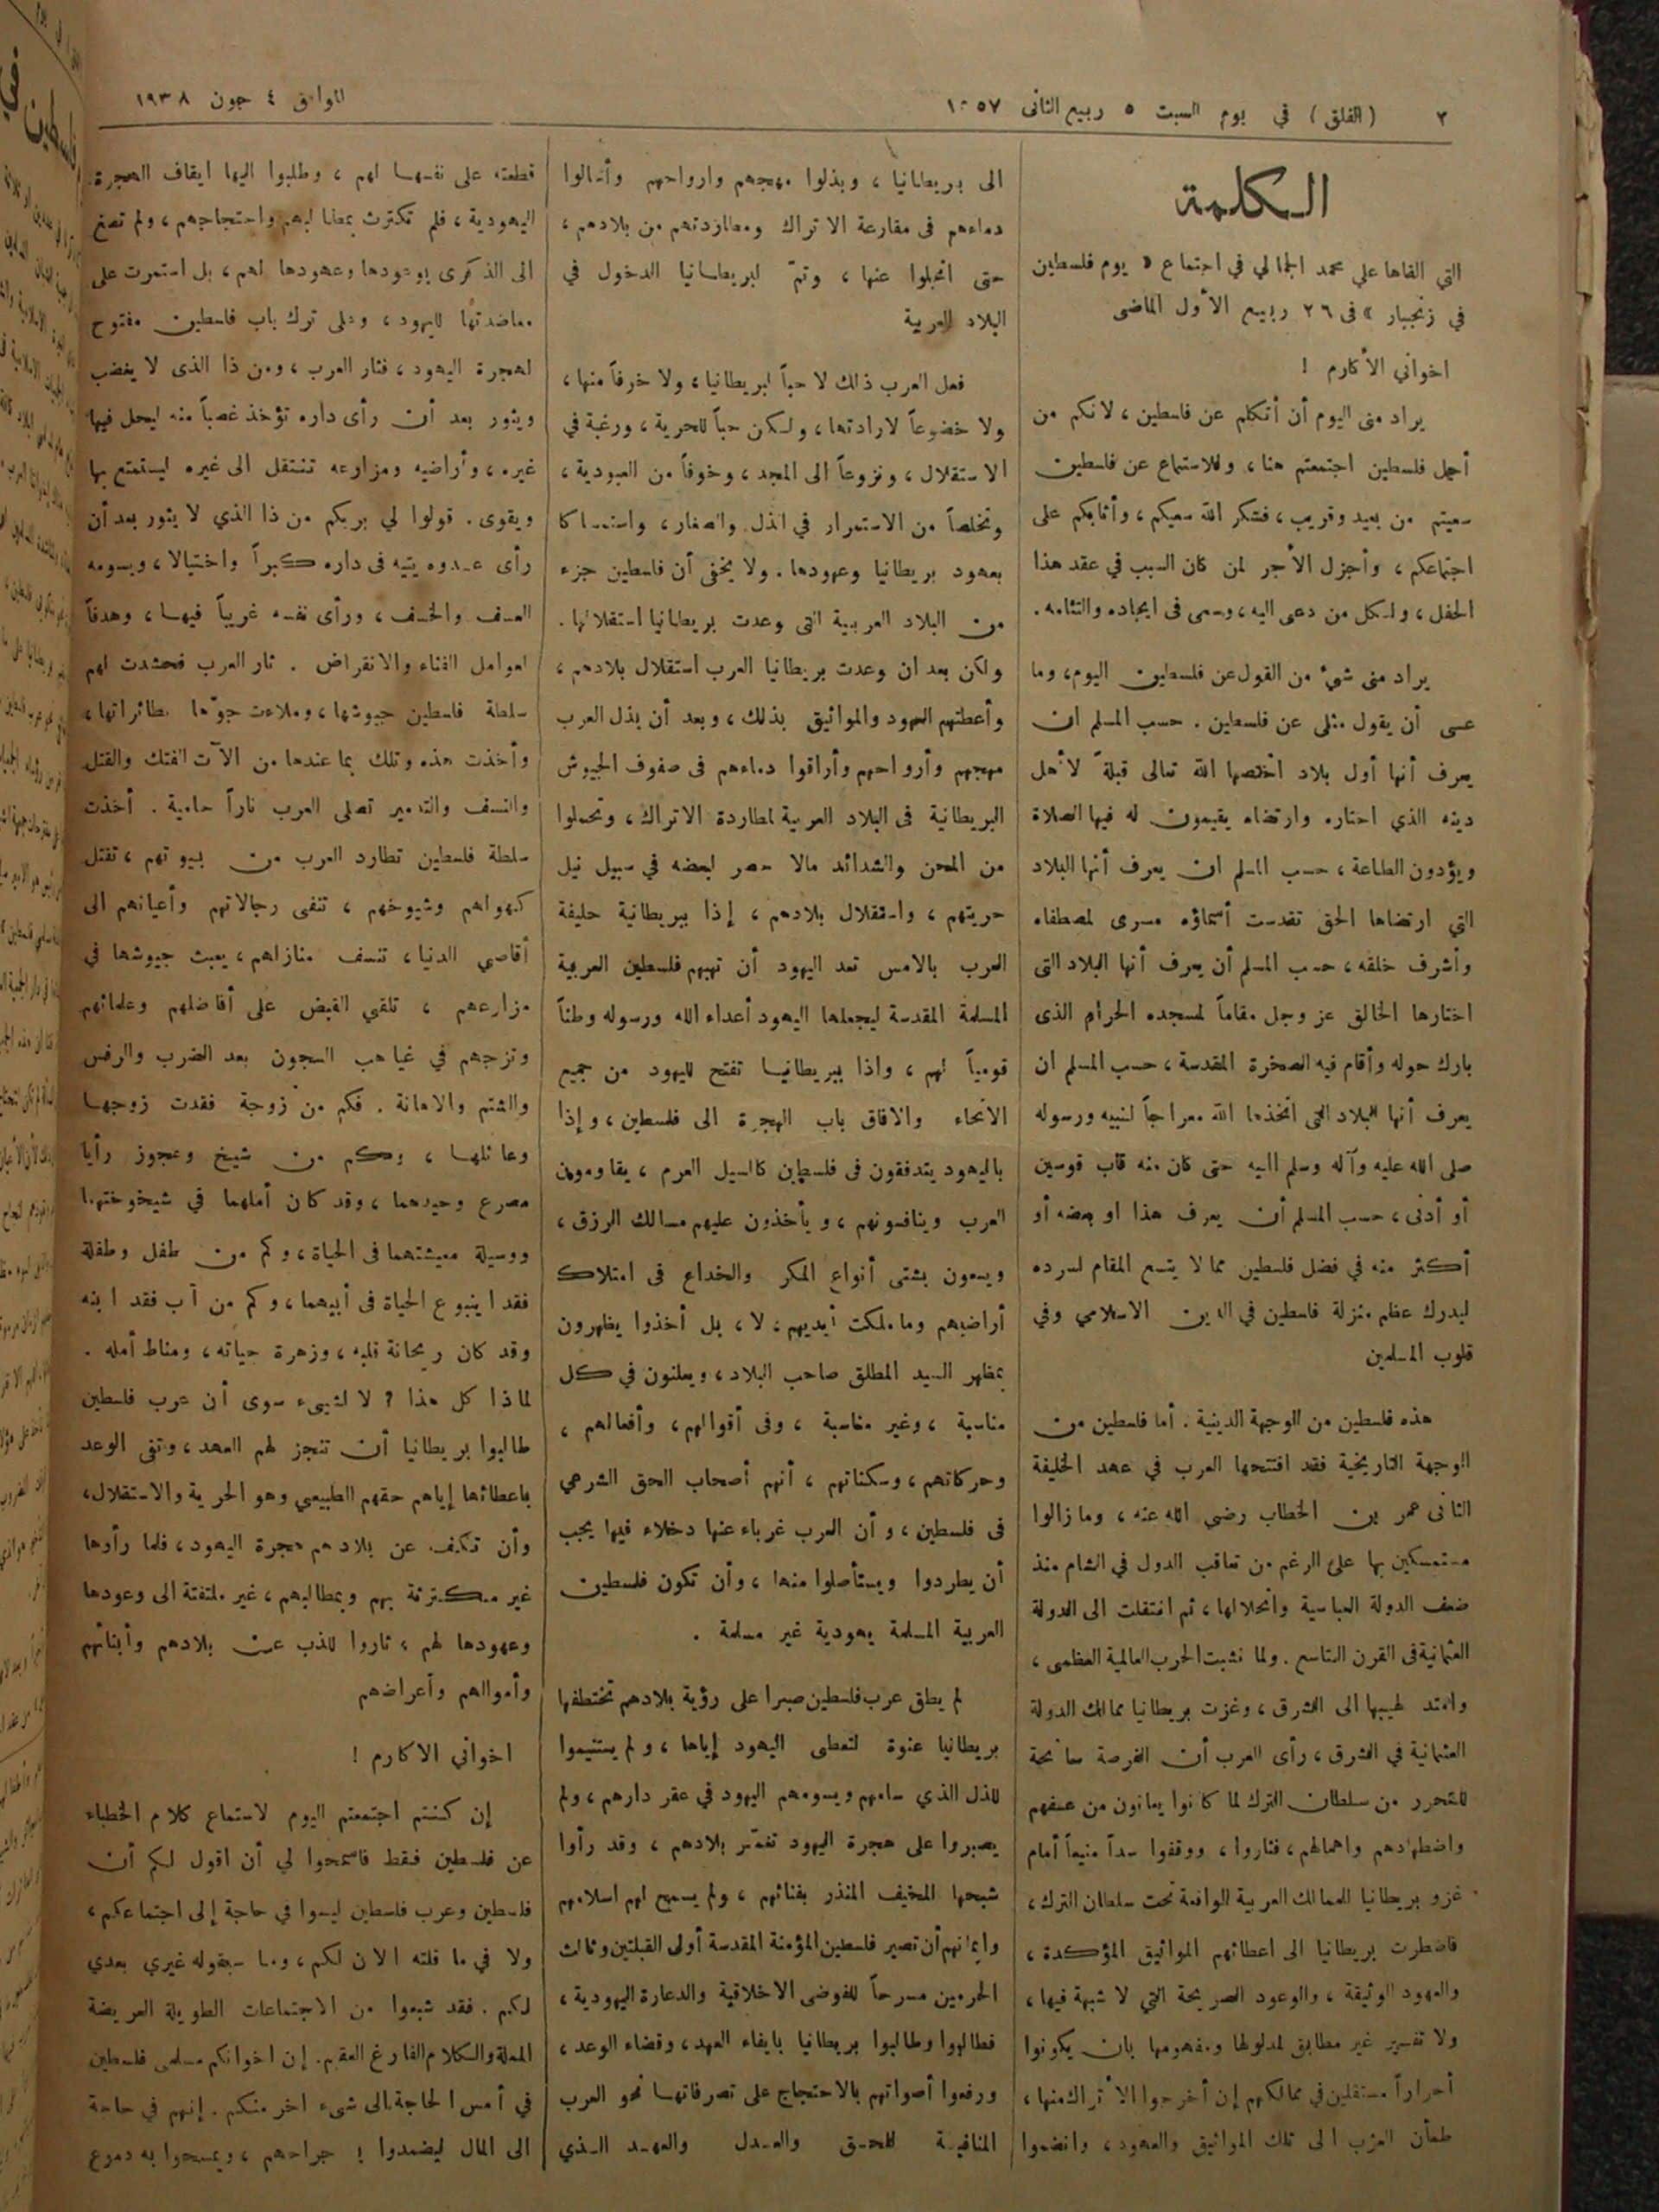 ٢ (الفلق) في يوم السبت ٥ ربيع الثانى ١٣٥٧
الموافق ٤ جون ١٩٣٨
الـكلمة
التي القاها علي محمد الجمالي في اجتماع « يوم فلسطين
في زنجبار » فى ٢٦ ربيع الأول الماضى
اخواني الأكارم !
يراد منى اليوم أن أتكلم عن فلسطين ، لانكم من
أجل فلسطين اجتمعتم هنا ، وللاستماع عن فلسطين
سعيتم من بعيد وقريب ، فشكر الله سعيكم ، وأثابكم على
اجتماعكم ، وأجزل الأجر لمن كان السبب في عقد هذا
الحفل ، ولكل من دعى اليه ، وسمى فى ايجاده والتئامه .
يراد منى شيء من القول عن فلسطين اليوم ، وما
عسى أن يقول مثلى عن فلسطين . حسب المسلم ان
يعرف أنها أول بلاد اختصها الله تعالى قبلةً لأهل
دينه الذي اختاره وارتضاه يقيمون له فيها الصلاة
ويؤدون الطاعة ، حسب المسلم ان يعرف أنها البلاد
التي ارتضاها الحق تقدست أسماؤه مسرى لمصطفاه
وأشرف خلقه ، حسب المسلم أن يعرف أنها البلاد التى
اختارها الخالق عز وجل مقاماً لمسجده الحرام الذى
بارك حوله وأقام فيه الصخرة المقدسة ، حسب المسلم ان
يعرف أنها البلاد التى اتخذها الله معراجاً لنبيه ورسوله
صلى الله عليه وآله وسلم اليه حتى كان منه قاب قوسين
أو أدنى ، حسب المسلم أن يعرف هذا او بعضه أو
أكثر منه في فضل فلسطين مما لا يتسع المقام لسرده
ليدرك عظم منزلة فلسطين في الدين الاسلامي وفي
قلوب المسلمين
هذه فلسطين من الوجهة الدينية . أما فلسطين من
الوجهة التاريخية فقد افتتحها العرب في عهد الخليفة
الثانى عمر بن الخطاب رضي الله عنه ، وما زالوا
مستمسكين بها على الرغم من تعاقب الدول في الشام منذ
ضعف الدولة العباسية وانحلالها ، ثم انتقلت الى الدولة
العثمانية فى القرن التاسع . ولما نشبت الحرب العالمية العظمى ،
وامتد لهيبها الى الشرق ، وغزت بريطانيا ممالك الدولة
العثمانية في الشرق ، رأى العرب أن الفرصة سانحة
للتحرر من سلطان الترك لما كانوا يعانون من عسفهم
واضطهادهم واهمالهم ، فثاروا ، ووقفوا سداً منيعاً أمام
غزو بريطانيا للممالك العربية الواقعة تحت سلطان الترك ،
فاضطرت بريطانيا الى اعطائهم المواثيق المؤكدة ،
والعهود الوثيقة ، والوعود الصريحة التي لا شبهة فيها ،
ولا تفسير غير مطابق لمدلولها ومفهومها بان يكونوا
أحراراً مستقلين في ممالكهم إن أخرجوا الأتراك منها ،
طمأن العرب الى تلك المواثيق والعهود ، وانضموا
الى بريطانيا ، وبذلوا مهجهم وارواحهم وأسالوا
دماءهم فى مقارعة الاتراك ومطاردتهم من بلادهم ،
حتى انجلوا عنها ، وتمّ لبريطانيا الدخول في
البلاد العربية
فعل العرب ذلك لا حباً لبريطانيا ، ولا خوفاً منها ،
ولا خضوعاً لارادتها ، ولكن حباً للحرية ، ورغبة في
الاستقلال ، ونزوعاً الى المجد ، وخوفاً من العبودية ،
وتخلصاً من الاستمرار في الذل والصغار ، واستمساكا
بعهود بريطانيا وعهودها . ولا يخفى أن فلسطين جزء
من البلاد العربية التى وعدت بريطانيا استقلالها .
ولكن بعد ان وعدت بريطانيا العرب استقلال بلادهم ،
وأعطتهم العهود والمواثيق بذلك ، وبعد أن بذل العرب
مهجهم وأرواحهم وأراقوا دماءهم فى صفوف الجيوش
البريطانية فى البلاد العربية لمطاردة الاتراك ، وتحملوا
من المحن والشدائد مالا حصر لبعضه في سبيل نيل
حريتهم ، واستقلال بلادهم ، إذا ببريطانية حليفة
العرب بالامس تعد اليهود أن تهبهم فلسطين العربية
المسلمة المقدسة ليجعلها اليهود أعداء الله ورسوله وطناً
قومياً لهم ، واذا ببريطانيا تفتح لليهود من جميع
الانحاء والافاق باب الهجرة الى فلسطين ، وإذا
باليهود يتدفقون فى فلسطين كالسيل العرم ، يقاومون
العرب وينافسونهم ، ويأخذون عليهم مسالك الرزق ،
ويسعون بشتى أنواع المكر والخداع فى امتلاك
أراضيهم وما ملكت أيديهم ، لا ، بل أخذوا يظهرون
بمظهر السيد المطلق صاحب البلاد ، ويعلنون في كل
مناسبة ، وغير مناسبة ، وفى أقوالهم ، وأفعالهم ،
وحركاتهم ، وسكناتهم ، أنهم أصحاب الحق الشرعي
فى فلسطين ، وأن العرب غرباء عنها دخلاء فيها يجب
أن يطردوا ويستأصلوا منها ، وأن تكون فلسطين
العربية المسلمة يهودية غير مسلمة .
لم يطق عرب فلسطين صبرا على رؤية بلادهم تختطفها
بريطانيا عنوة لتعطى اليهود إياها ، ولم يستنيموا
للذل الذي سامهم ويسومهم اليهود في عقر دارهم ، ولم
يصبروا على هجرة اليهود تغمر بلادهم ، وقد رأوا
شبحها المخيف المنذر بفنائهم ، ولم يسمح لهم اسلامهم
وايمانهم أن تصير فلسطين المؤمنة المقدسة أولى القبلتين وثالث
الحرمين مسرحاً للفوضى الاخلاقية والدعارة اليهودية ،
فطالبوا وطالبوا بريطانيا بايفاء العهد ، وقضاء الوعد ،
ورفعوا أصواتهم بالاحتجاج على تصرفاتها نحو العرب
المنافية للحق والعدل والعهد الذي
قطعته على نفسها لهم ، وطلبوا اليها ايقاف الهجرة
اليهودية ، فلم تكترث بمطالبهم واحتجاجهم ، ولم تصغ
الى الذكرى بوعودها وعهودها لهم ، بل استمرت على
معاضدتها لليهود ، وعلى ترك باب فلسطين مفتوح
لهجرة اليهود ، فثار العرب ، ومن ذا الذى لا يغضب
ويثور بعد أن رأى داره تؤخذ غصباً منه ليحل فيها
غيره ، وأراضيه ومزارعه تنتقل الى غيره ليستمتع بها
ويقوى . قولوا لي بربكم من ذا الذي لا يثور بعد أن
رأى عدوه يتيه فى داره كبراً واختيالا ، ويسومه
العسف والخسف ، ورأى نفسه غريباً فيها ، وهدفاً
لعوامل الفناء والانقراض . ثار العرب فحشدت لهم
سلطة فلسطين جيوشها ، وملاءت جوّها بطائراتها ،
وأخذت هذه وتلك بما عندها من الآت الفتك والقتل
والنسف والتدمير تصلى العرب ناراً حامية . أخذت
سلطة فلسطين تطارد العرب من بيوتهم ، تقتل
كهولهم وشيوخهم ، تنفى رجالاتهم وأعيانهم الى
أقاصي الدنيا ، تنسف منازلهم ، يعبث جيوشها في
مزارعهم ، تلقي القبض على أفاضلهم وعلمائهم
وتزجهم في غياهب السجون بعد الضرب والرفس
والشتم والاهانة . فكم من زوجة فقدت زوجها
وعائلها ، وكم من شيخ وعجوز رأيا
مصرع وحيدهما ، وقد كان أملهما في شيخوختهما
ووسيلة معيشتهما فى الحياة ، وكم من طفل وطفلة
فقدا ينبوع الحياة فى أبيهما ، وكم من آب فقد ابنه
وقد كان ريحانة قلبه ، وزهرة حياته ، ومناط أمله .
لماذا كل هذا ؟ لا لشيىء سوى أن عرب فلسطين
طالبوا بريطانيا أن تنجز لهم العهد ، وتفى الوعد
باعطائها إياهم حقهم الطبيعي وهو الحرية والاستقلال ،
وأن تكف عن بلادهم هجرة اليهود ، فلما رأوها
غير مكترثة بهم وبمطالبهم ، غير ملتفتة الى وعودها
وعهودها لهم ، ثاروا للذب عن بلادهم وأبنائهم
وأموالهم وأعراضهم
اخواني الاكارم !
إن كنتم اجتمعتم اليوم لاستماع كلام الخطباء
عن فلسطين فقط فاسمحوا لي أن اقول لكم أن
فلسطين وعرب فلسطين ليسوا في حاجة إلى اجتماعكم ،
ولا في ما قلته الان لكم ، وما سيقوله غيري بعدي
لكم . فقد شبعوا من الاجتماعات الطويلة العريضة
المملة والكلام الفارغ العقيم . إن اخوانكم مسلمى فلسطين
في أمس الحاجة الى شىء اخر منكم . إنهم في حاجة
الى المال ليضمدوا ! جراحهم ، ويمسحوا به دموع